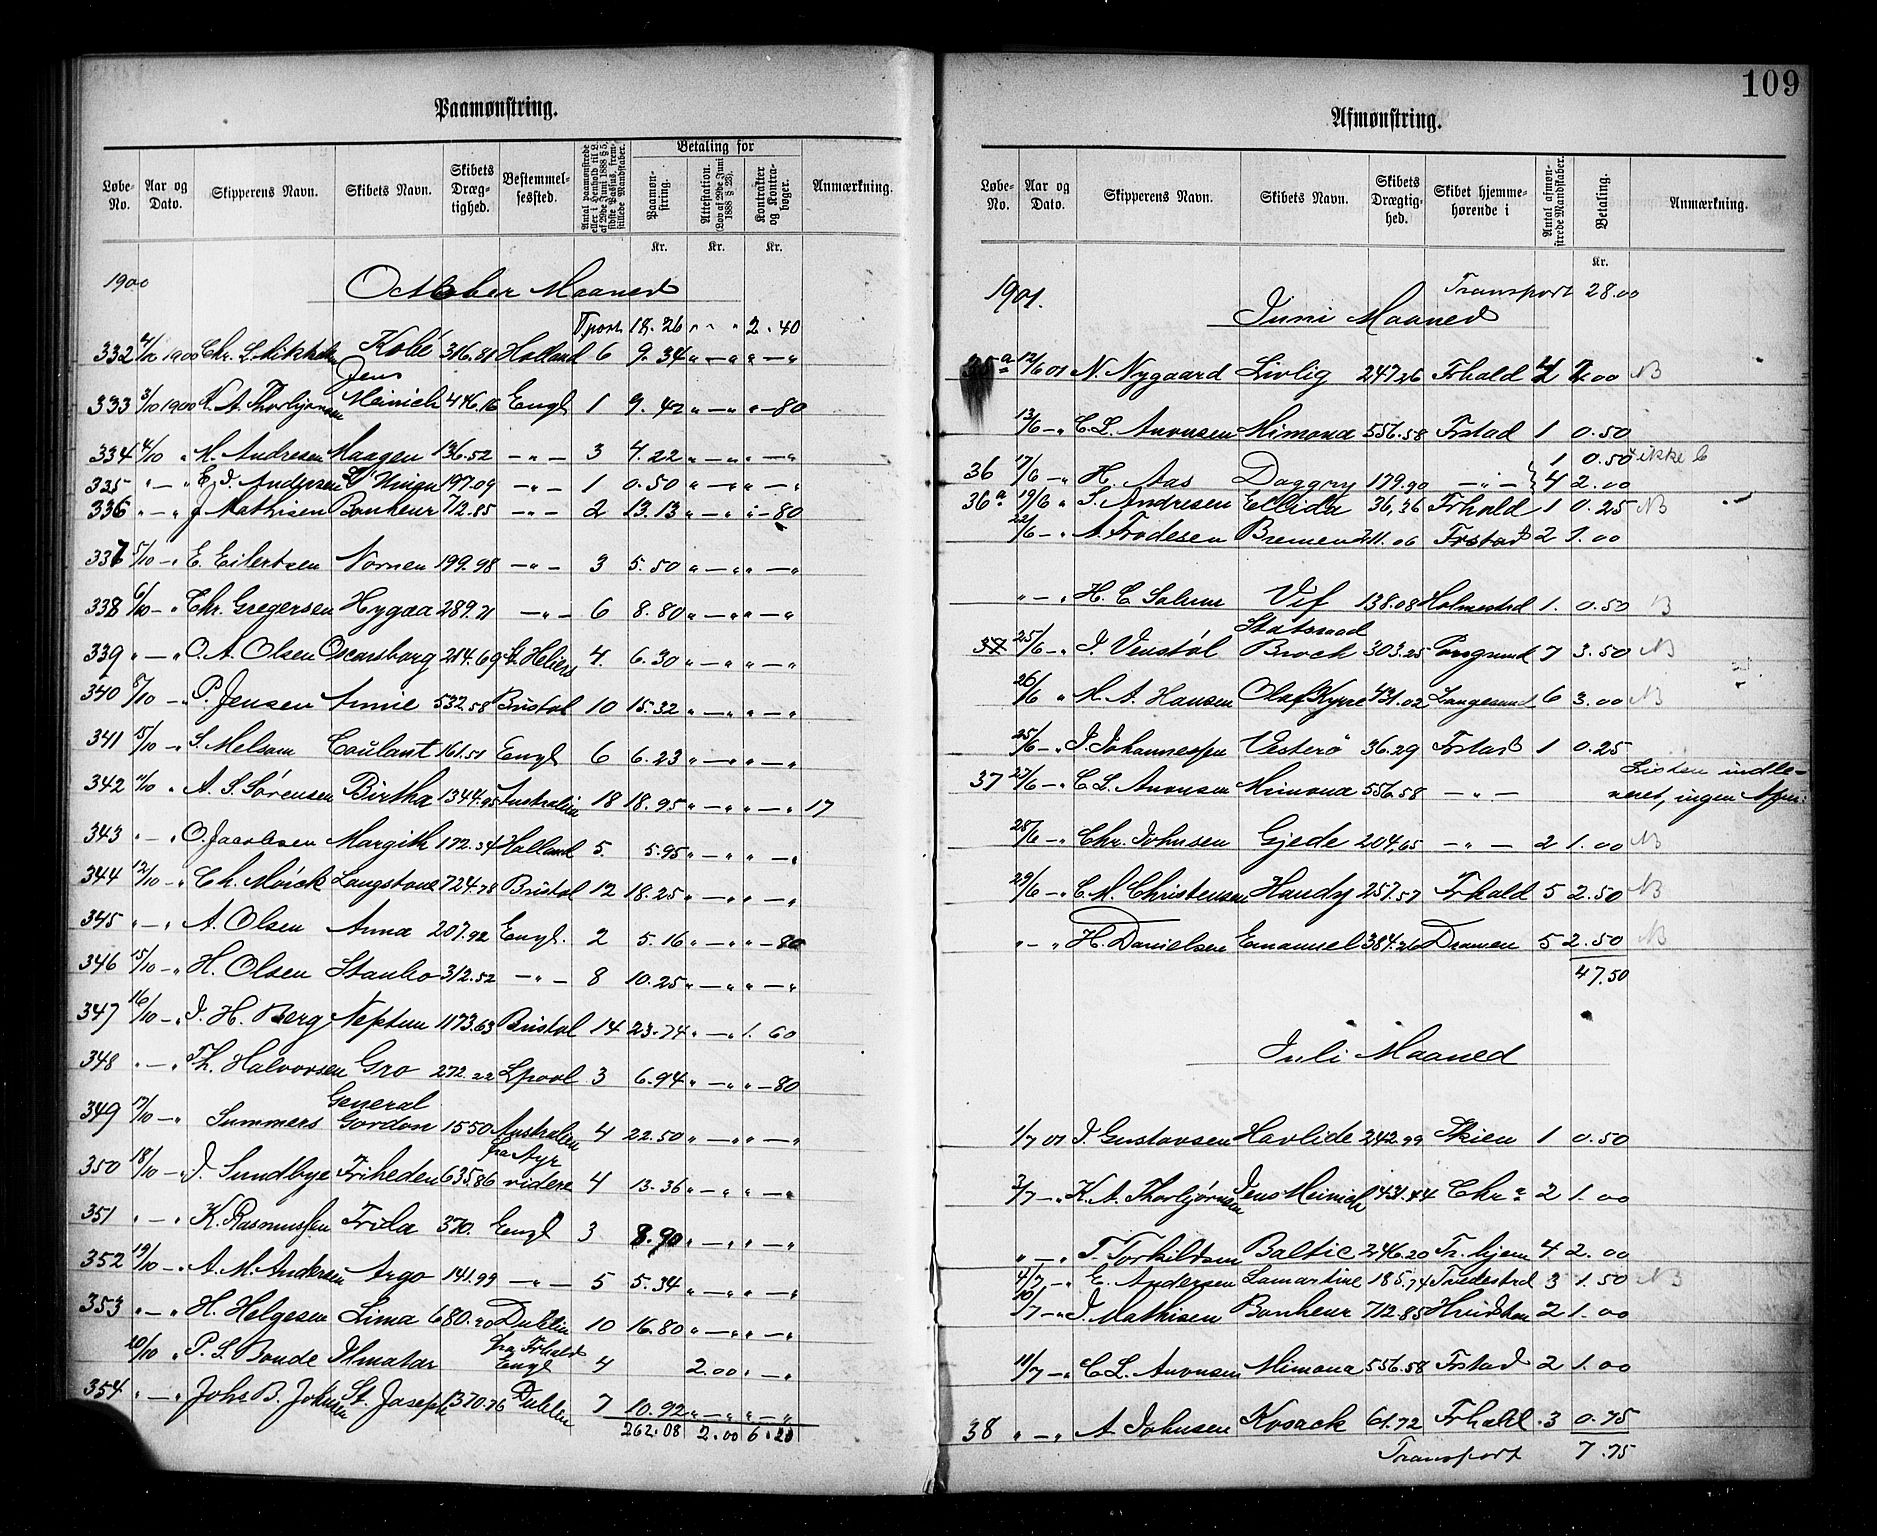 109
Paamønstring.
Løbe-No. Aar og Dato. Skipperens Navn. Skibets Navn. Skibets Dræg-tighed. Bestemmel-sessted. Antal paamønstrede eller i Henhold til L. af 29de Juni 1888 § 5, sidste Passus, frem-stillede Mandskaber. Betaling for Paamøn-string. Attestation. (Lov af 29de Juni 1888 § 23). Kontrakter og Kontra-bøger. Anmærkning.
Kr. Kr. Kr.
1900 October Maaned
Tport 18.26 " " " 2.40
332 2/10 1900 Chr. L. Mikkelsen Kobé 316.81 Holland 6 9.34 " — " " — "
Jens
333 3/10 1900 K. A. Thorbjørnsen Meinich 446.16 Engl 1 9.42 " — " " — 80
334 4/10 " M. Andresen Haagen 136.52 — " — 3 4.22 " — " " — "
335 " — " E. J. Andersen 197.09 — " — 1 0.50 " — " " — "
336 " — " J Mathisen Bonheur 712.85 — " — 2 13.13 " — " " — 80
337 5/10 — " E. Eilertsen Nornen 199.98 — " — 3 5.50 " — " " — "
338 6/10 — " Chr. Gregersen Hygæa 289.21 — " — 6 8.80 " — " " — "
339 " — " O. A. Olsen Oscarsborg 214.69 St Heliers 4. 6.30 " — " " — "
340 8/10 — " P. Jensen Annie 532.58 Bristol 10 15.32 " — " " — "
341 5/10 — " S. Melsom Coulant 161.51 Engl 6 6.23 " — " " — "
342 9/10 " A. S. Sörensen Birtha 1344.95 Australien 18 18.95 " — " " — " 17
343 " — " O. Jacobsen Margith 172.34 Holland 5. 5.95 " — " " — "
344 12/10 — " Ch. Mörck Langstone 724.78 Bristol 12 18.25 " — " " — "
345 " — " A. Olsen Anna 207.92 Engl. 2 5.16 " — " " — 80
346 15/10 — " H. Olsen Stanho 312.52 — " — 8 10.25 " — " " — "
347 16/10 — " J. H. Berg Neptun 1173.63 Bristol 14 23.74 " — " 1. 60
348 " — " Th. Halvorsen Gro 272.22 Lpool 3 6.94 " — " " — 80
General
349 17/10 — " Summers Gordon 1550 Australien 4 22.50 " — " " — "
fra Ayr
350 18/10 — " J. Sundbye Friheden 635.86 videre 4 13.36 " — " " — "
351 " — " K. Rasmussen Frida 370. Engl 3 8.90 " — " " — "
352 19/10 — " A. M. Andersen Argo 141.99 — " — 5 5.34 " — " " — "
353 " — " H. Helgesen Lima 680.20 Dublin 10 16.80 " — " " — "
fra Frhald
20/10 " P. S. Bonde Ilmatar Engl 4 2.00 " — "
354 " — " Johs B. Johnsen St. Joseph 1370.76 Dublin 7 10.92 " — " " — "
262.08 2.00 6.20
Afmønstring.
Løbe-No. Aar og Dato. Skipperens Navn. Skibets Navn. Skibets Drægtig-hed. Skibet hjemme-hørende i Antal afmøn-strede Mandskaber. Betaling. Anmærkning.
Kr.
Transport 28.00
1901. Juni Maaned
35 a 12/6 01 N. Nygaard Livlig 247.26 Frhald 4 2.00 NB
13/6 — " C. L. Anonsen Mimona 556.58 Frstad 1 0.50
1 0.50 ikke b
36 17/6 — " H. Aas Daggry 179.90 — " — 4 2.00
36 a 19/6 " S. Andresen Ellida 36.36 Frhald 1 0.25 NB
22/6 — " A. Frodesen Bremen 211.06 Frstad 2 1.00
" — " H. C. Solum Vif 138.08 Holmestrd 1. 0.50 B
Statsraad
37 25/6 — " J. Venstöl Broch 303.25 Porsgrund 7 3.50 NB
26/6 " M. A. Hansen Olaf Kyrre 431.02 Langesund 6 3.00 NB
25/6 — " J. Johannessen Vesterö 36.29 Frstad 1 0.25
37 27/6 — " C. L. Anonsen Mimona 556.58 — " — Listen indle-
veret, ingen Afm:
28/6 — " Chr. Johnsen Gjede 204.65 — " — 2 1.00 NB
29/6 — " C. M. Christensen Handy 257.57 Frhald 5 2.50 NB
" — " H. Danielsen Emanuel 384.26 Dramen 5 2.50 NB
47.50
Juli Maaned
1/7 01 J. Gustavsen Havlide 242.99 Skien 1 0.50
2/7 — " K. A. Thorbjørnsen Jens Meinich 431.44 Chr a 2 1.00
" — " T. Torkildsen Baltic 246.20 Tr.hjem 4 2.00
4/7 — " E. Andersen Lamartine 185.74 Tvedestrd 3 1.50 NB
10/7 — " J. Mathisen Bonheur 712.85 Hvidsten 2 1.00
11/7 — " C L. Anonsen Mimona 556.58 Frstad 2 1.00
38 " — " A. Johnsen Kosack 61.72 Frhald 3 0.75
Transport 7.75